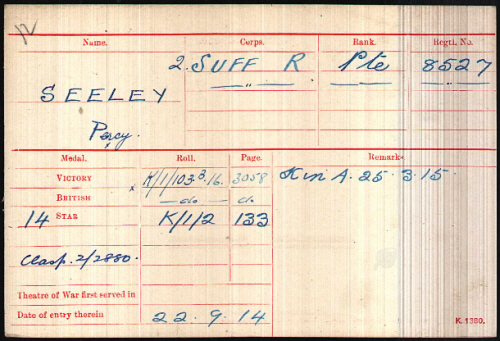 12
Name. Corps. Rank. Regtl. No.
2. SUFF R Pte 8527
SEELEY — " — — " — — " —
Percy.
Medal. Roll. Page. Remarks.
VICTORY x K/1/103 B.16. 3058 K in A. 25.3.15.
BRITISH —do— do
14 STAR K/1/2 133
Clasp. 2/2880.
Theatre of War first served in
Date of entry therein 22.9.14
K. 1380.